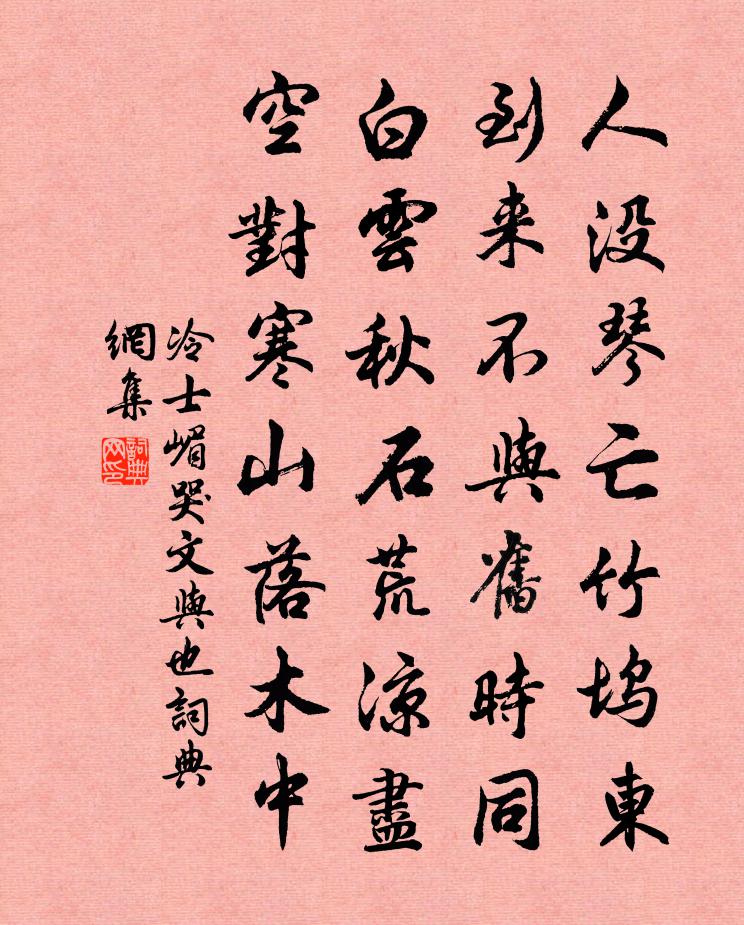 人没琴亡竹坞東
到来不與舊時同
白雲秋石荒涼盡
空對寒山落木中
冷士嵋哭文與也詞典
網集
詞典
网印